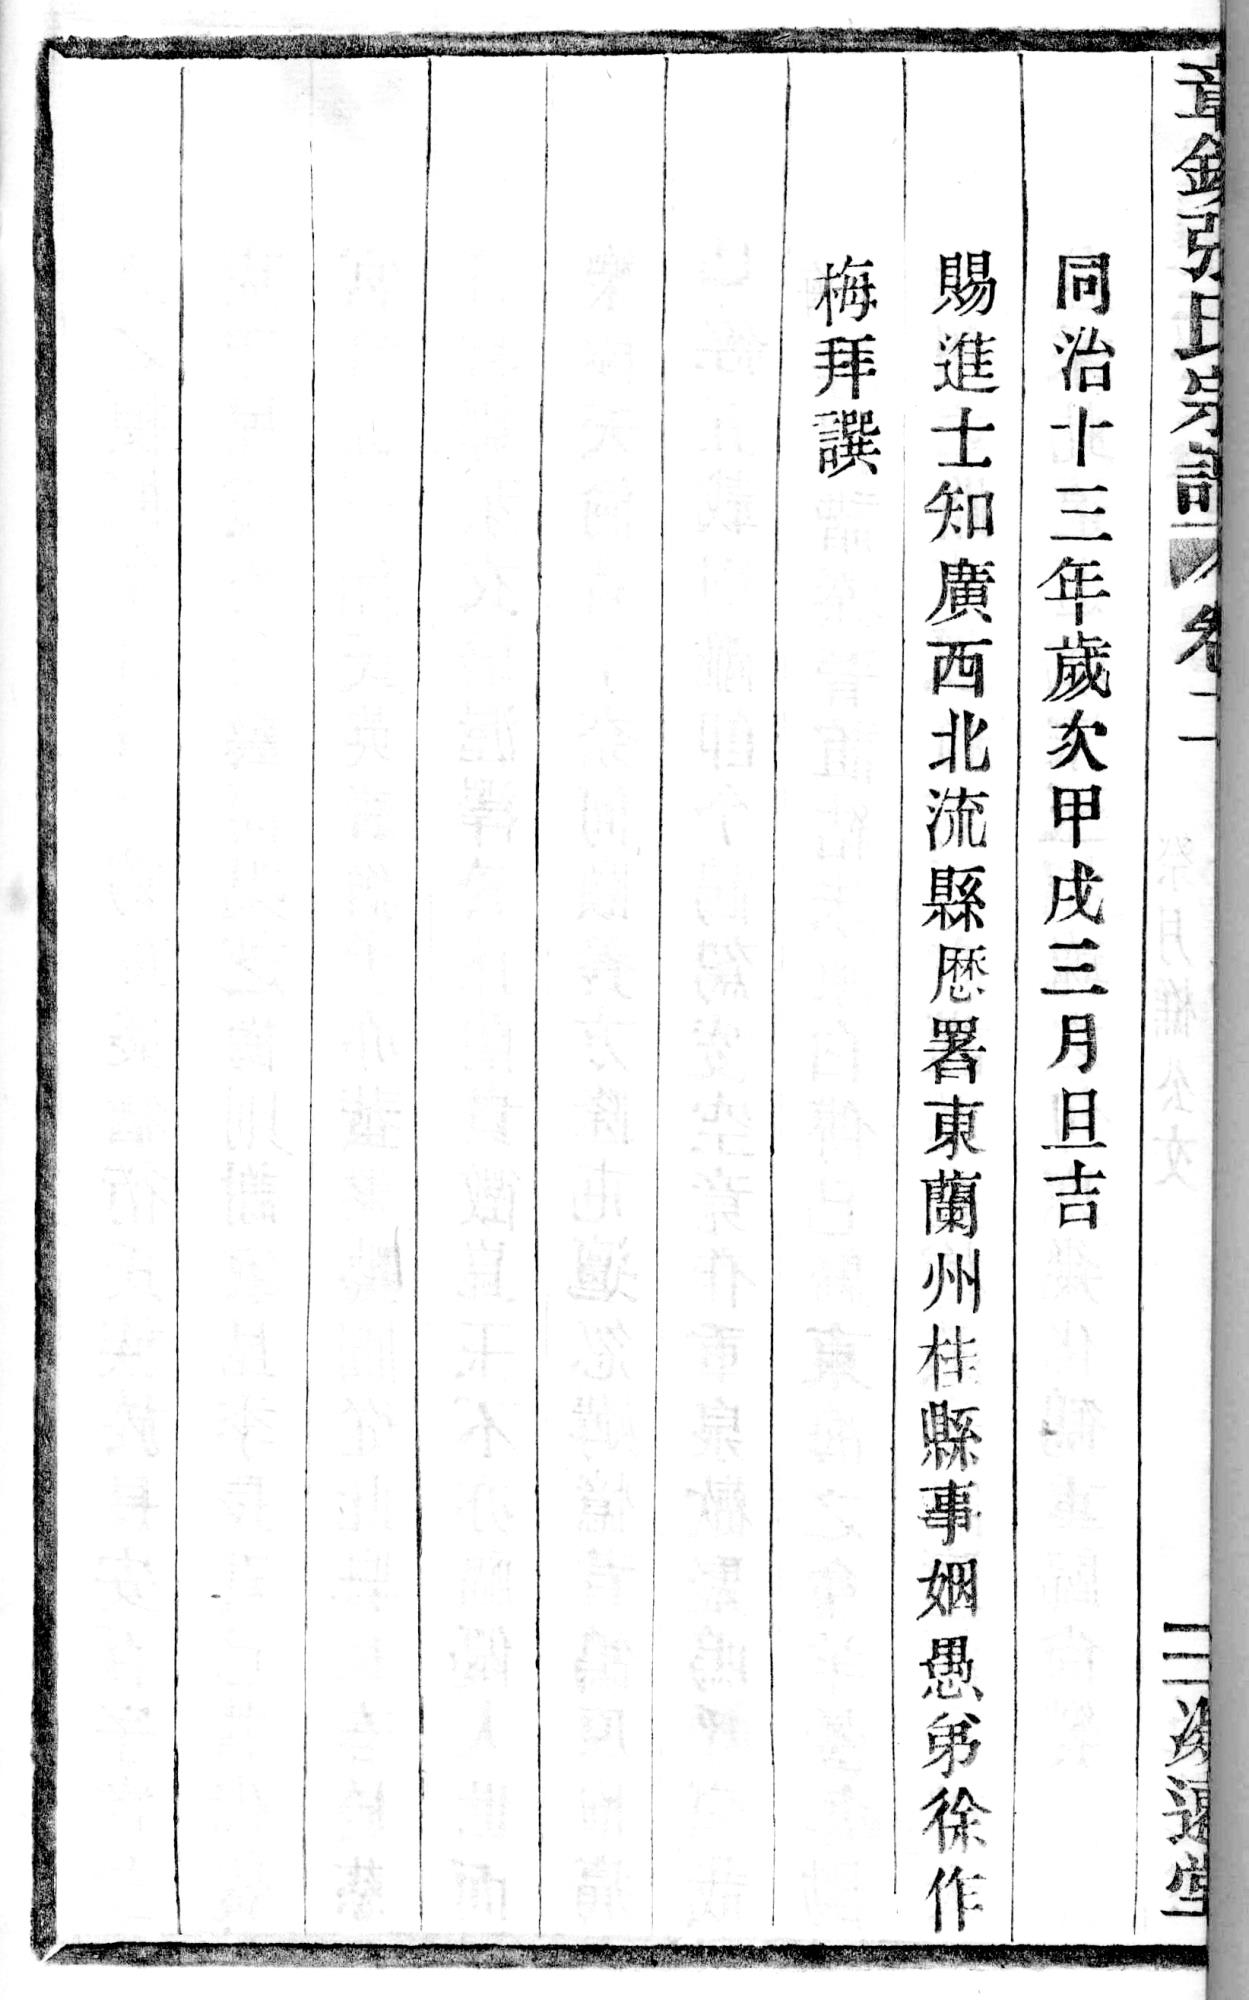 同治十三年歲次甲戌三月旦吉
賜進士知廣西北流縣歷署東蘭州桂縣事姻愚弟徐作
梅拜譔
張氏宗譜 卷二 三 遠堂